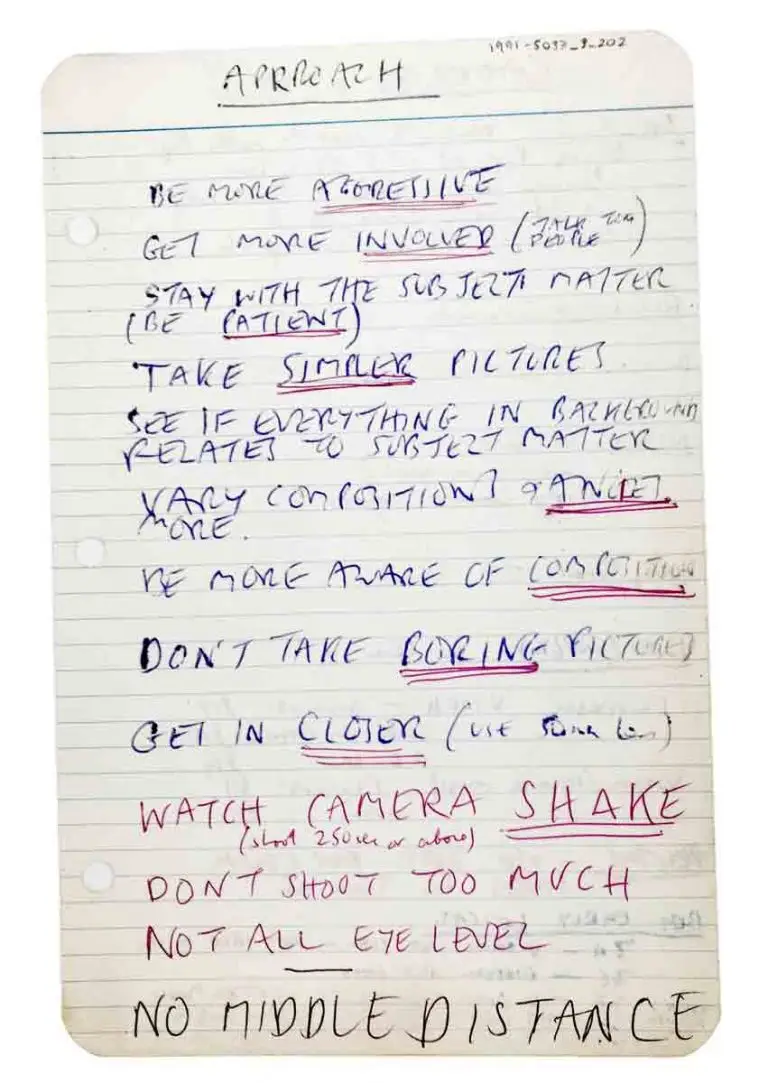 1991-5037_9_202
APPROACH
BE MORE AGGRESSIVE
GET MORE INVOLVED (TALK TO PEOPLE)
STAY WITH THE SUBJECT MATTER
(BE PATIENT)
TAKE SIMPLER PICTURES
SEE IF EVERYTHING IN BACKGROUND
RELATES TO SUBJECT MATTER
VARY COMPOSITIONS & ANGLES
MORE.
BE MORE AWARE OF COMPOSITION
DON'T TAKE BORING PICTURES
GET IN CLOSER (USE 50mm lens)
WATCH CAMERA SHAKE
(shoot 250sec or above)
DON'T SHOOT TOO MUCH
NOT ALL EYE LEVEL
NO MIDDLE DISTANCE